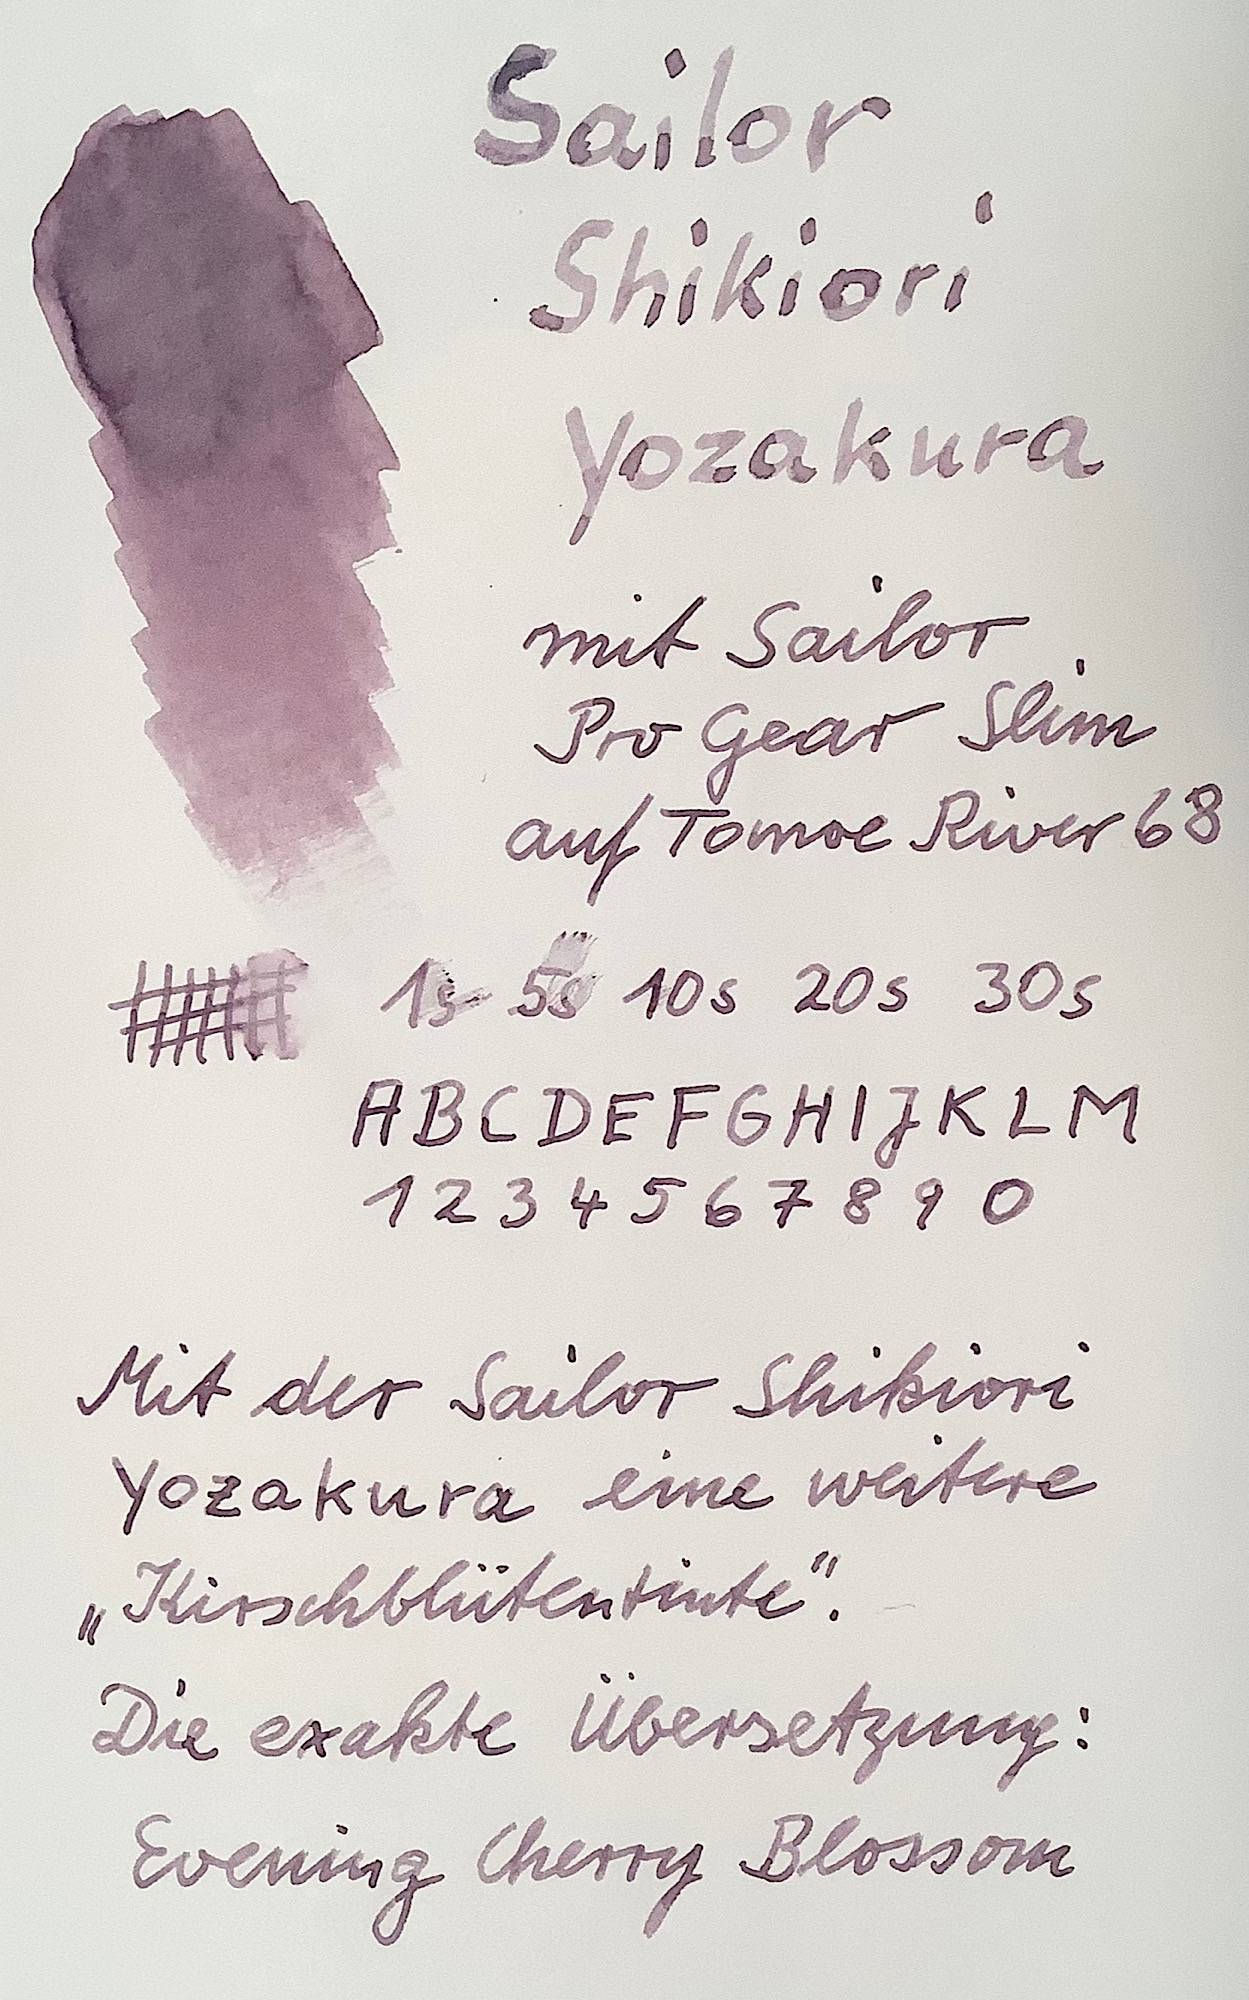 Sailor
Shikiori
Yozakura
mit Sailor
Pro Gear Slim
auf Tomoe River 68
1s 5s 10s 20s 30s
ABCDEFGHIJKLM
1 2 3 4 5 6 7 8 9 0
Mit der Sailor Shikiori
Yozakura eine weitere
„Kirschblütentinte“.
Die exakte Übersetzung:
Evening Cherry Blossom